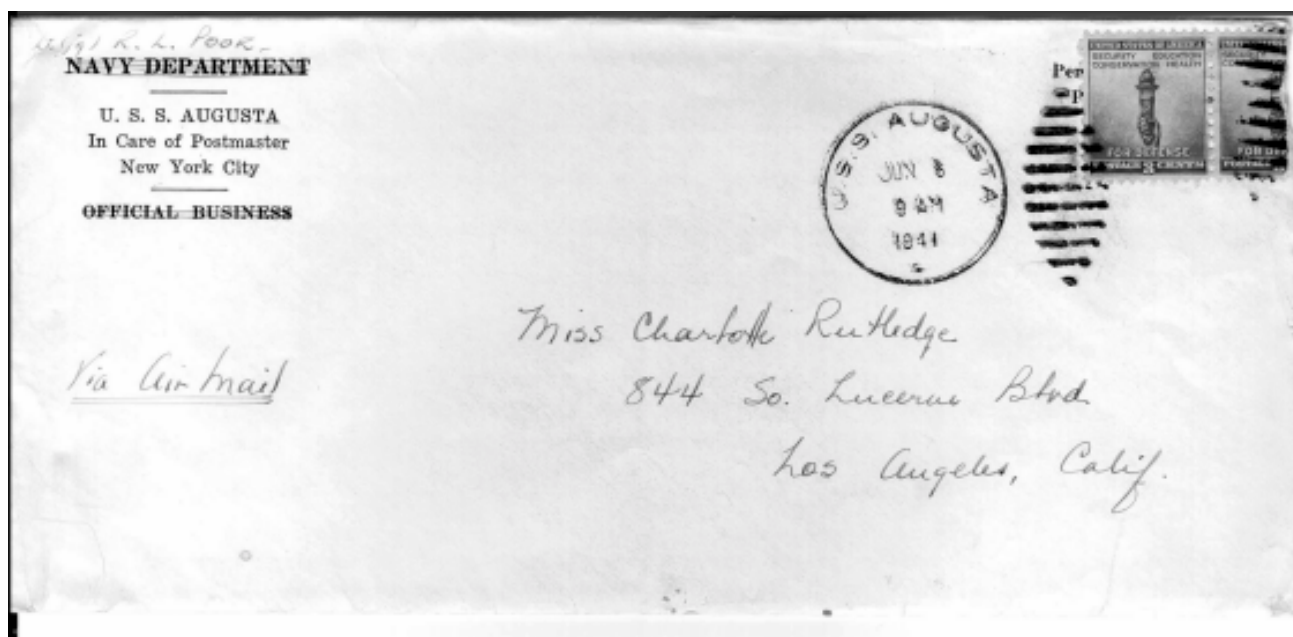 Ensign R. L. Poor
NAVY DEPARTMENT
U. S. S. AUGUSTA
In Care of Postmaster
New York City
OFFICIAL BUSINESS
Via Air Mail
U.S.S. AUGUSTA
JUN 8
9 AM
1941
UNITED STATES OF AMERICA
SECURITY EDUCATION
CONSERVATION HEALTH
FOR DEFENSE
POSTAGE 3 CENTS
FOR DE
POSTAGE
Miss Charlotte Rutledge
844 So. Lucerne Blvd
Los Angeles, Calif.